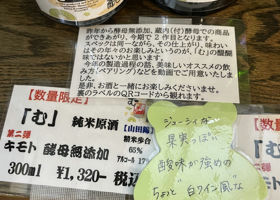 昨年から酵母無添加、蔵内(付)酵母での商品
ができあがり、今期で2作目となります。
スペックは同一ながら、その仕上がり、味わい
はその年々のお楽しみというのが、「む」の醍醐
味ではないかと思います。
今年の製造過程の話、美味しいオススメの
飲み方(ペアリング)などを動画でご用意いたしま
した。
是非、お酒と一緒にお楽しみください。
裏のラベルのQRコードから観れます。
【数量限定】
「む」 純米原酒
第二弾
【山田錦】
精米歩合
65%
キモト 酵母無添加
アルコール
300ml ¥1,320- 税込
【数
ジューシー
果実っぽい
酸味が強めの
ちょっと 白ワイン風な